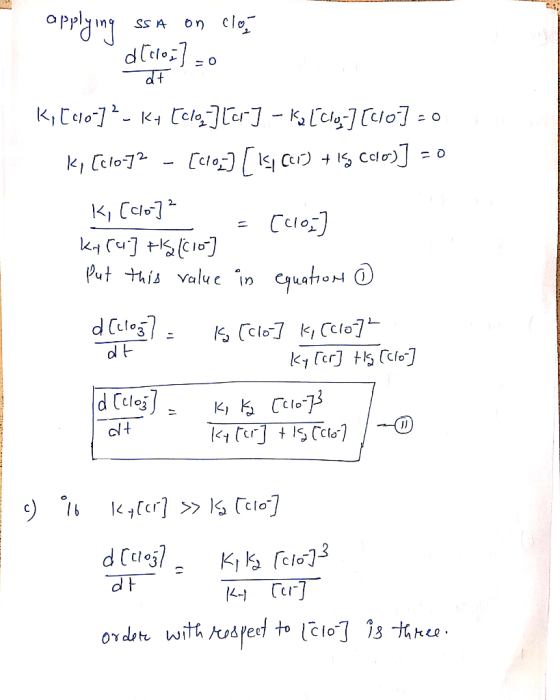 applying SSA on ClO₂⁻
d[ClO₂⁻]/dt = 0
K₁[ClO⁻]² - K₋₁[ClO₂⁻][Cl⁻] - K₂[ClO₂⁻][ClO⁻] = 0
K₁[ClO⁻]² - [ClO₂⁻][K₋₁(Cl⁻) + K₂(ClO⁻)] = 0
K₁[ClO⁻]² / K₋₁[Cl⁻] + K₂[ClO⁻] = [ClO₂⁻]
Put this value in equation ①
d[ClO₃⁻]/dt = K₂[ClO⁻] K₁[ClO⁻]² / K₋₁[Cl⁻] + K₂[ClO⁻]
d[ClO₃⁻]/dt = K₁ K₂ [ClO⁻]³ / K₋₁[Cl⁻] + K₂[ClO⁻] — ⑪
c) if K₋₁[Cl⁻] >> K₂[ClO⁻]
d[ClO₃⁻]/dt = K₁K₂[ClO⁻]³ / K₋₁ [Cl⁻]
order with respect to [ClO⁻] is three.